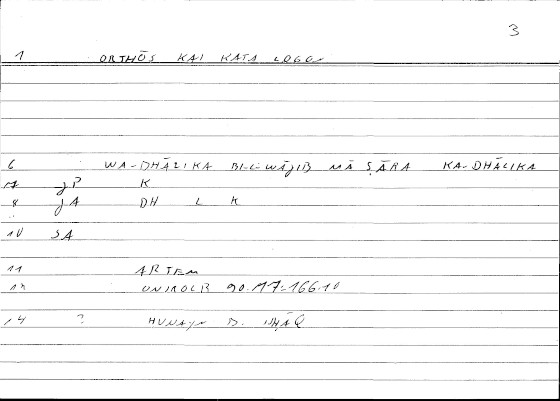 3
1 ORTHŌS KAI KATA LOGON
6 WA-DHĀLIKA BI-L-WĀJIB MĀ ṢĀRA KA-DHĀLIKA
7 JP K
8 JA DH L K
10 SA
11 ARTEM
13 90.17-166.10
14 ? HUNAYN B. ISḤĀQ